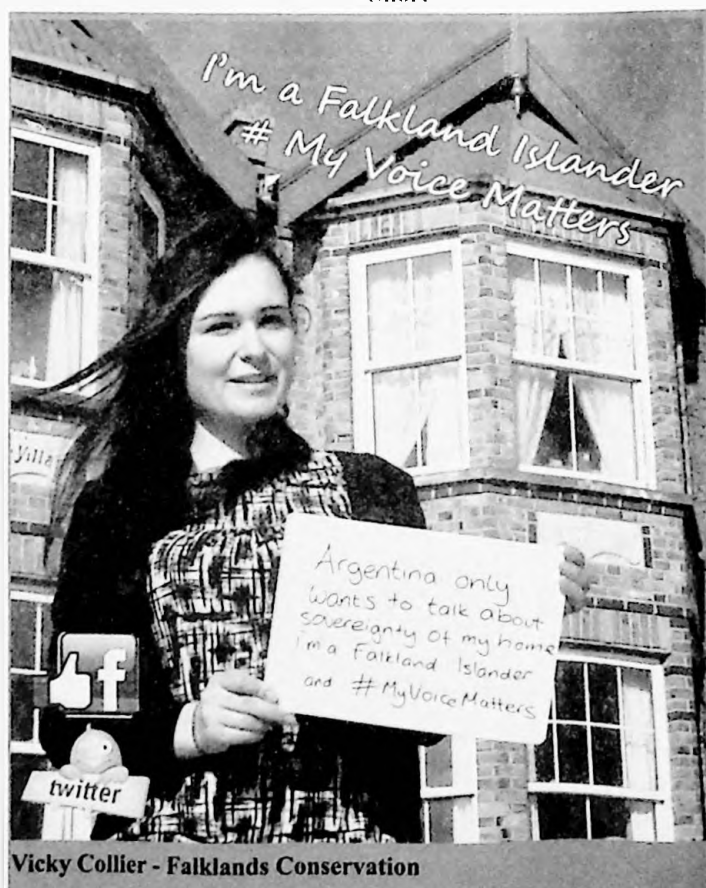 I'm a Falkland Islander
# My Voice Matters
Villa
Argentina only
wants to talk about
sovereignty of my home
i'm a Falkland Islander
and #MyVoiceMatters
f
twitter
Vicky Collier - Falklands Conservation